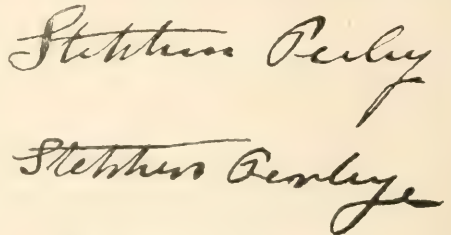 Stephen Perley
Stephen Perlye